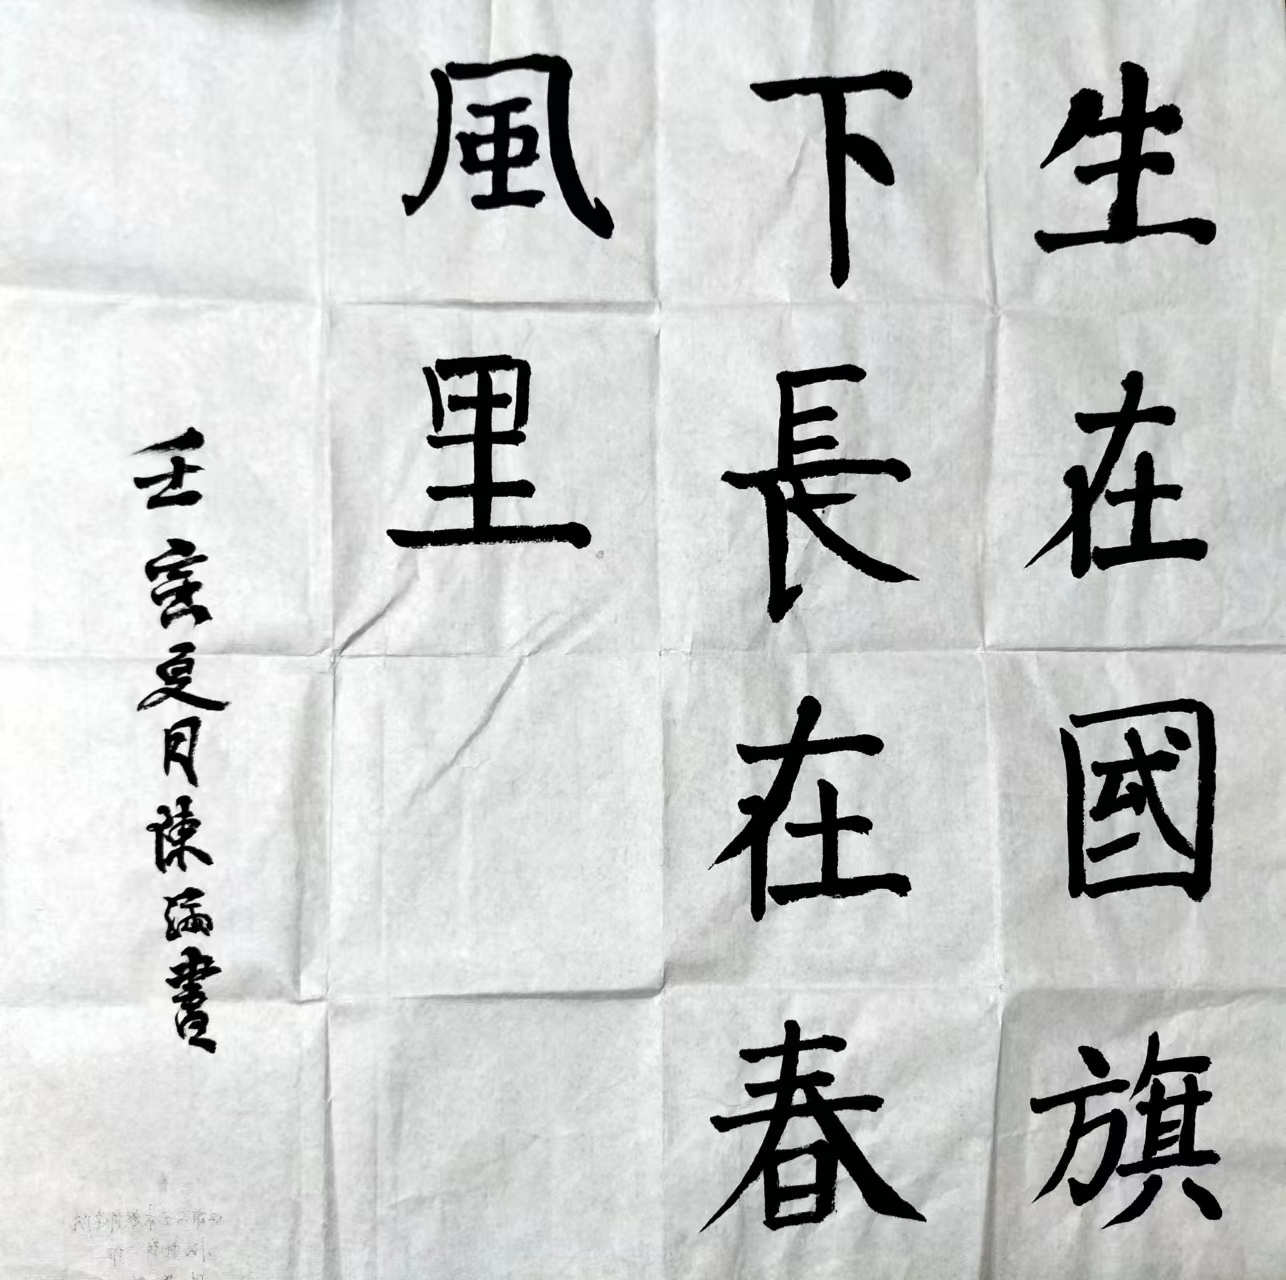 生在國旗
下長在春
風里
壬寅夏月陳滿書